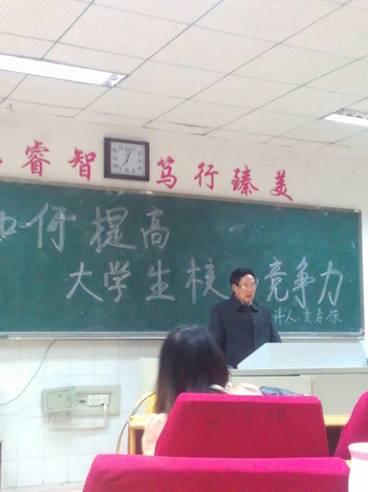 睿智 笃行臻美
如何提高
大学生核 竞争力
讲人: